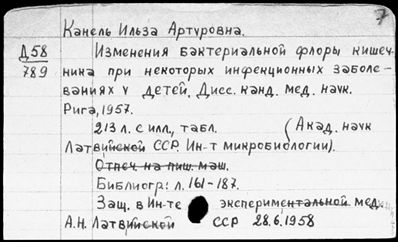 7
Канель Ильза Артуровна.
Д58 Изменения бактериальной флоры кишеч-
789 ника при некоторых инфекционных заболе-
ваниях у детей. Дисс. канд. мед. наук.
Рига, 1957.
213 л. с илл., табл. (Акад. наук
Латвийской ССР. Ин-т микробиологии).
Отпеч. на пиш. маш.
Библиогр: л. 161-187.
Защ. в Ин-те экспериментальной мед.
А.Н. Латвийской ССР 28.6.1958